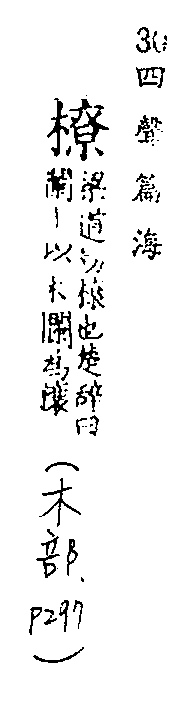 30 四聲篇海
橑 梁道切椽也楚辭曰
蘭丨以木蘭為榱
（木部、P297）